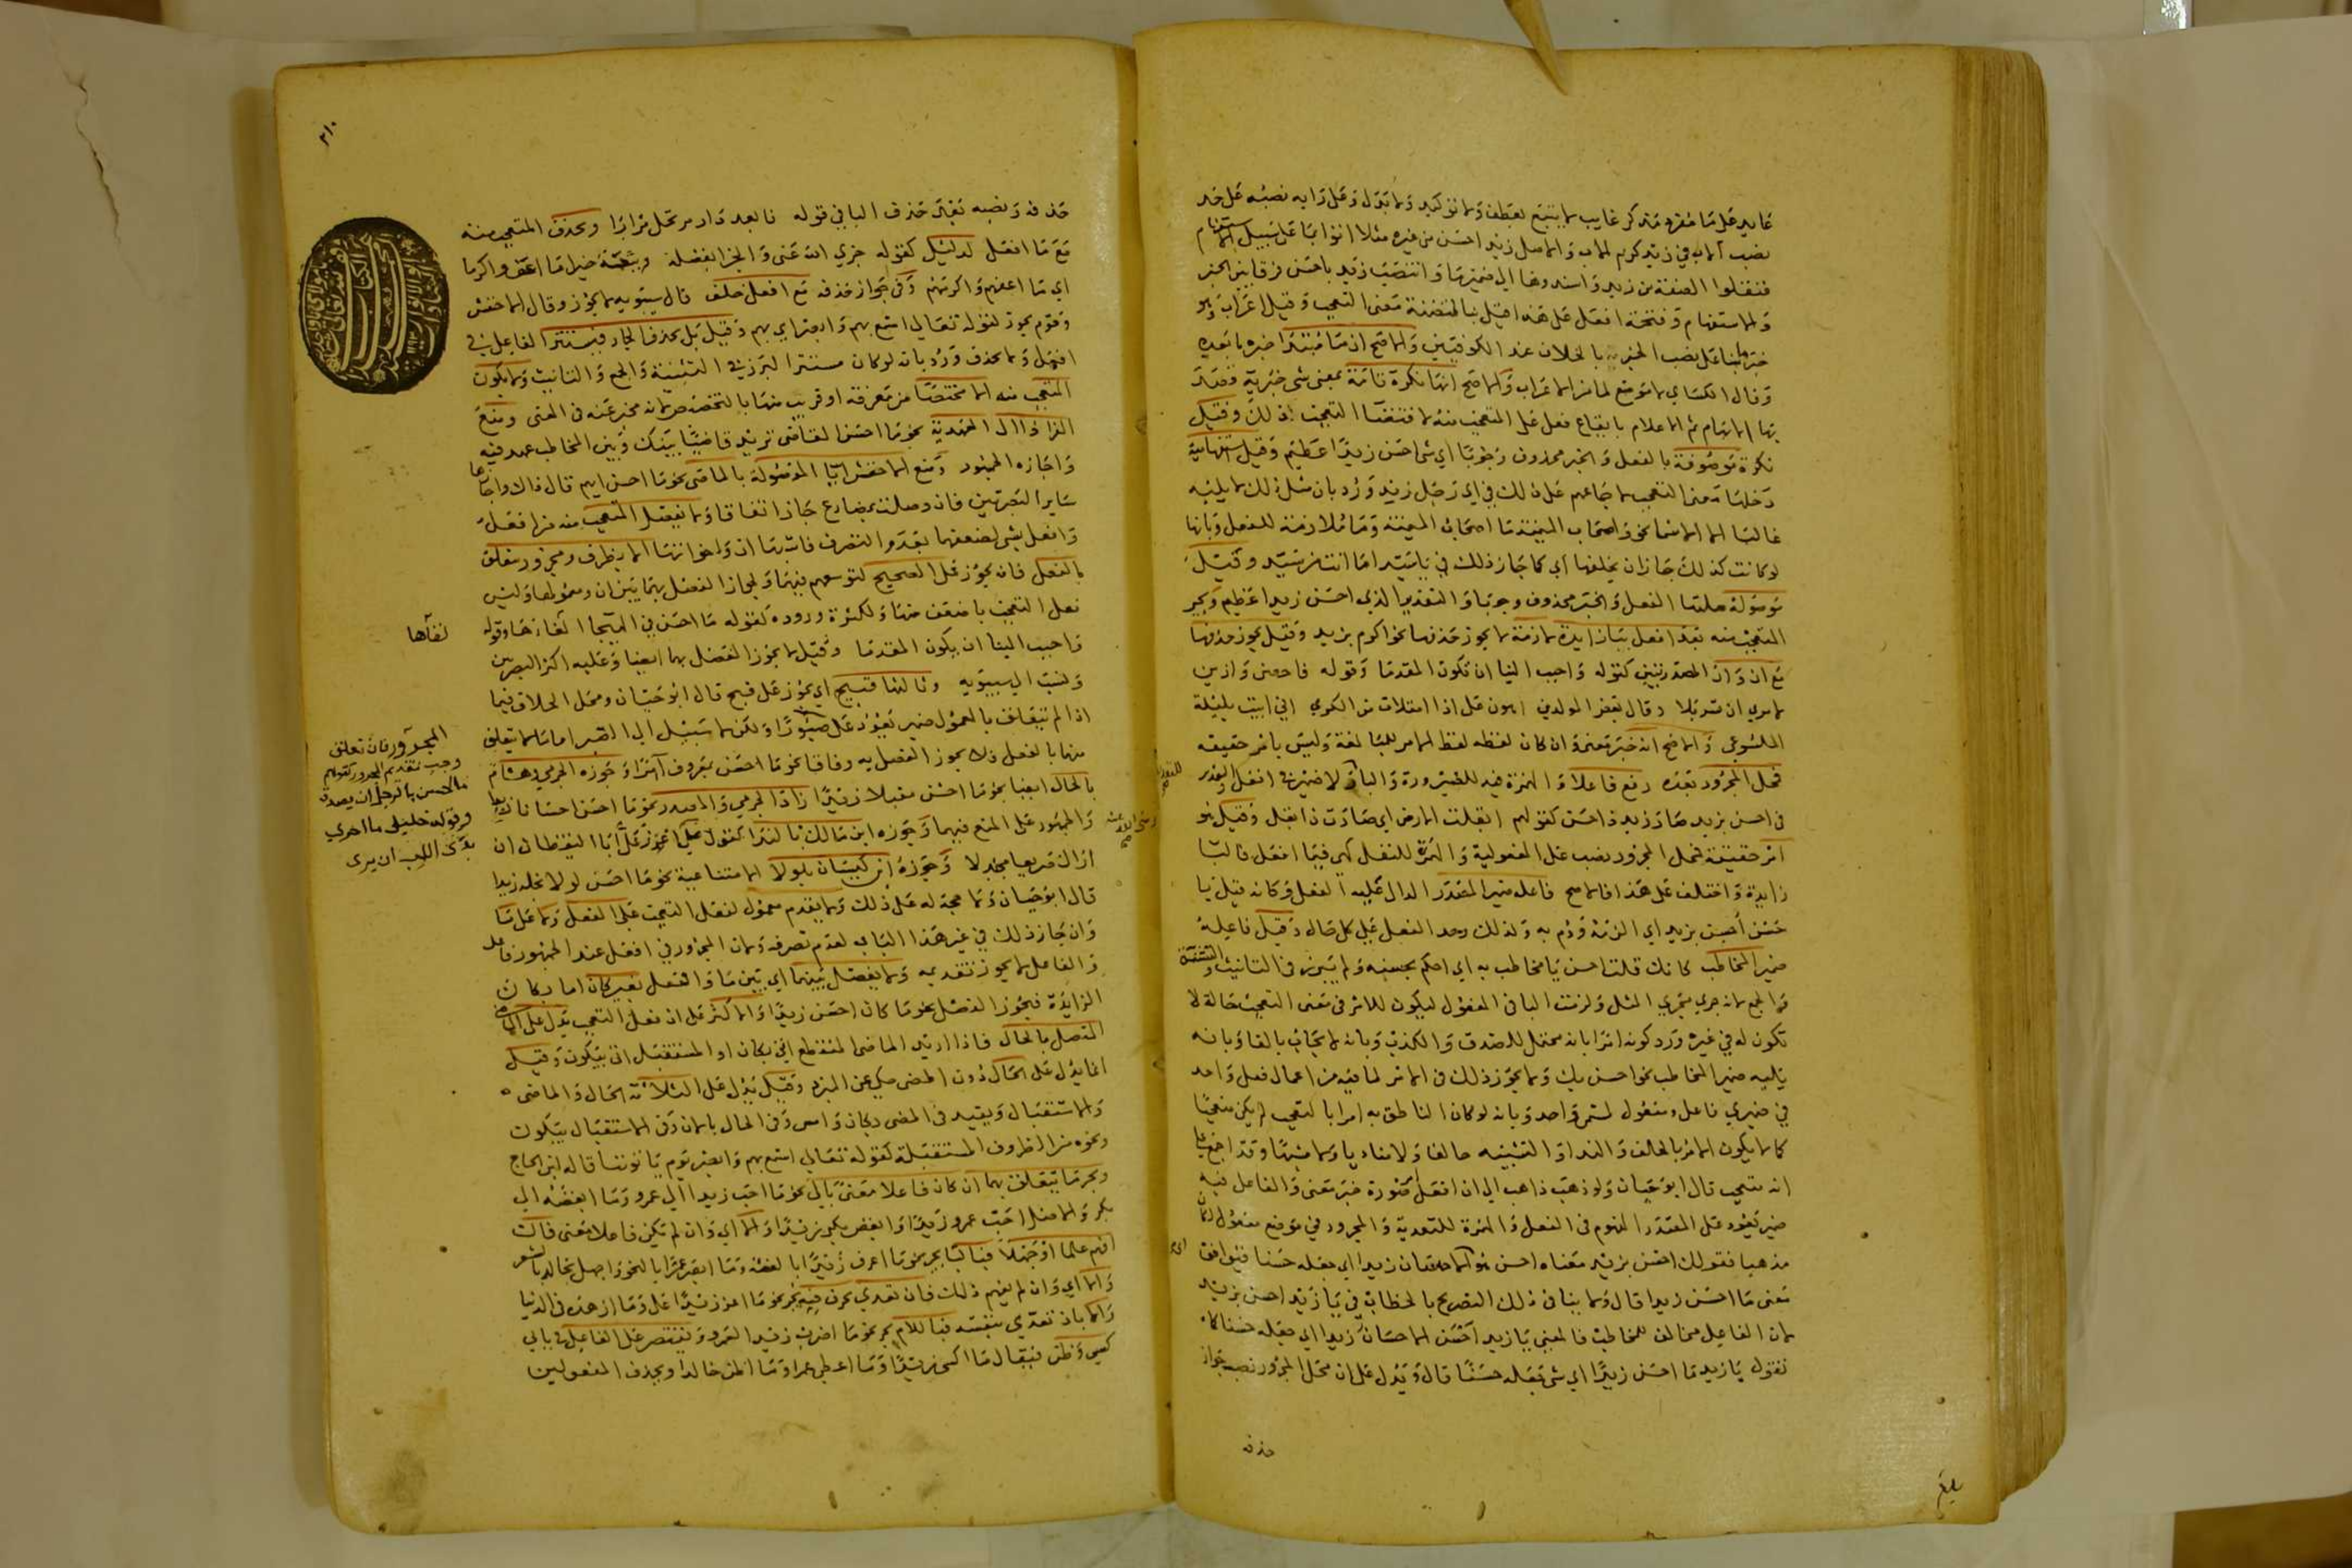 عايد على ما مفرد مذكر غايب لا يتبع بعطف ولا توكيد ولا بدل وعلى رايه نصبه على حد
نصب الاب في زيد كريم الاب والاصل زيد احسن من غيره مثلا اتوا بما على سبيل الاستفهام
فنقلوا الصفة من زيد واسندوها الى ضمير ما وانتصب زيد باحسن فرقا بين الخبر
والاستفهام وفتحة افعل على هذا قيل بنا لتضمنه معنى التعجب وقيل اعراب وهو
خبر ما بنا على نصب الخبر بالخلاف عند الكوفيين والاصح ان ما مبتدا خبره ما بعده
وقال الكساي لا موضع لما من الاعراب والاصح انها نكرة تامة بمعنى شي خبرية قصد
بها الابهام ثم الاعلام بايقاع فعل على المتعجب منه لاقتضا التعجب ذلك وقيل
نكرة موصوفة بالفعل والخبر محذوف وجوبا اي شي احسن زيدا عظيم وقيل استفهامية
دخلها معنى التعجب لاجماعهم على ذلك في اي رجل زيد ورد بان مثل ذلك لا يليه
غالبا الا الاسما نحو واصحاب اليمين ما اصحاب اليمين وما ملازمة للفعل وبانها
لو كانت كذلك جاز ان يخلفها اي كما جاز ذلك في يا سيدا ما انت من سيد وقيل
موصولة صلتها الفعل والخبر محذوف وجوبا والتقدير الذي احسن زيدا عظيم ويجر
المتعجب منه بعد افعل ببا زايدة لازمة لا يجوز حذفها نحو اكرم بزيد وقيل يجوز حذفها
مع ان وان المصدريتين كقوله واحبب الينا ان تكون المقدما وقوله
وقال بعض المولدين اهون على اذا امتلات من الكرى اني ابيت بليلة
الملسوع والاصح انه خبر معنى وان كان لفظه لفظ الامر للمبالغة وليس بامر حقيقة
فمحل المجرور بعده رفع فاعلا والهمزة فيه للصيرورة والبا ولا ضمير في افعل
في احسن بزيد صار زيد ذا حسن كقولهم ابقلت الارض اي صارت ذا بقل وقيل هو
امر حقيقة فمحل المجرور نصب على المفعولية والهمزة للنقل كهي في ما افعل فالبا
زايدة واختلف على هذا فالاصح فاعله ضمير المصدر الدال عليه الفعل وكانه قيل يا
حسن احسن بزيد اي الزمه ودم به ولذلك وحد الفعل على كل حال وقيل فاعله
ضمير المخاطب كانك قلت احسن يا مخاطب به اي احكم بحسنه ولم يبرز في التانيث والتثنية
والجمع لانه جرى مجرى المثل ولزمت البا في المفعول ليكون للامر في معنى التعجب حالة لا
تكون له في غيره ورد كونه امرا بانه محتمل للصدق والكذب وبانه لا يجاب بالفا وبانه
يليه ضمير المخاطب نحو احسن بك ولا يجوز ذلك في الامر لما فيه من اعمال فعل واحد
في ضميري فاعل ومفعول لمسمى واحد وبانه لو كان الناطق به امرا بالتعجب لم يكن متعجبا
كما لا يكون الامر بالحلف والندا والتشبيه حالفا ولا مناديا ولا مشبها وقد اجمع على
انه متعجب قال ابو حيان ولو ذهب ذاهب الى ان افعل صورة خبر معنى والفاعل فيه
ضمير يعود على المصدر المفهوم من الفعل والهمزة للتعدية والمجرور في موضع مفعول لكان
مذهبا فقولك احسن بزيد معناه احسن هو اي الاحسان زيدا اي جعله حسنا فيوافق
معنى ما احسن زيدا قال ولا ينافي ذلك التصريح بالخطاب في يا زيد احسن بزيد
لان الفاعل مخالف للمخاطب فالمعنى يا زيد احسن الاحسان زيدا اي جعله حسنا كما
تقول يا زيد ما احسن زيدا اي شي جعله حسنا قال ويدل على ان محل المجرور نصب جواز
حذفه
بلغ
٢١٠
حذفه ونصبه بعد حذف البا في قوله فابعد دار مرتحل مزارا ويحذف المتعجب منه
مع ما افعل لدليل كقوله جزى الله عني والجزا بفضله ربيعة خيرا ما اعف واكرما
اي ما اعفهم واكرمهم وفي جواز حذفه مع افعل خلف قال سيبويه لا يجوز وقال الاخفش
وقوم يجوز لقوله تعالى اسمع بهم وابصر اي بهم وقيل بل يحذف الجار فيستتر الفاعل في
افعل ولا يحذف ورد بانه لو كان مستترا لبرز في التثنية والجمع والتانيث ولا يكون
المتعجب منه الا مختصا من معرفة او قريب منها بالتخصيص لانه مخبر عنه في المعنى ومنع
الفرا ذا ال العهدية نحو ما احسن القاضي تريد قاضيا بينك وبين المخاطب عهد فيه
واجازه الجمهور ومنع الاخفش ايا الموصولة بالماضي نحو ما احسن ايهم قال ذاك واجازها
ساير البصريين فان وصلت بمضارع جاز اتفاقا ولا يفصل المتعجب منه من افعل
وافعل بشي لضعفهما بعدم التصرف فاشبها ان واخواتها الا بظرف ومجرور متعلق
بالفعل فانه يجوز على الصحيح لتوسعهم فيهما ولجواز الفصل بهما بين ان ومعمولها وليس
فعل التعجب باضعف منها ولكثرة وروده كقوله ما احسن في الهيجا لقاها وقوله
لقآها
واحبب الينا ان يكون المقدما وقيل لا يجوز الفصل بهما ايضا وعليه اكثر البصريين
ونسب الى سيبويه وثالثها قبيح اي يجوز على قبح قال ابو حيان ومحل الخلاف فيما
اذا لم يتعلق بالمعمول ضمير يعود على
المجرور فان تعلق
وجب تقديم المجرور كقولهم
ما احسن بالرجل ان يصدق
وقوله خليلي ما احرى
بذي اللب ان يرى
صبورا ولكن لا سبيل الى الصبر اما ما لا يتعلق
منهما بالفعل فلا يجوز الفصل به وفاقا نحو ما احسن بمعروف امرا وجوزه الجرمي وهشام
بالحال ايضا نحو ما احسن مقبلا زيدا زاد الجرمي والمصدر نحو ما احسن احسانا زيدا
والجمهور على المنع فيهما وجوزه ابن مالك بالندا كقول علي اعزز علي ابا اليقظان ان
رضي الله عنه
اراك صريعا مجدلا وجوزه ابن كيسان بلولا الامتناعية نحو ما احسن لولا بخله زيدا
قال ابو حيان ولا حجة له على ذلك ولا يقدم معمول لفعل التعجب على الفعل ولا على ما
وان جاز ذلك في غير هذا الباب لعدم تصرفه ولان المجرور في افعل عند الجمهور فاعل
والفاعل لا يجوز تقديمه ولا يفصل بينهما اي بين ما وافعل بغير كان اما بكان
الزايدة فيجوز الفصل نحو ما كان احسن زيدا والاكثر على ان فعل التعجب يدل على الماضي
المتصل بالحال فاذا اريد الماضي المنقطع اتي بكان او المستقبل اتي بيكون وقيل
انما يدل على الحال دون المضي حكي عن المبرد وقيل يدل على الثلاثة الحال والماضي
والاستقبال ويقيد في المضي بكان وامس وفي الحال بالان وفي الاستقبال بيكون
ونحوه من الظروف المستقبلة كقوله تعالى اسمع بهم وابصر يوم ياتوننا قاله ابن الحاج
ويجر ما يتعلق بهما ان كان فاعلا معنى بالى نحو ما احب زيدا الى عمرو وما ابغضه الى
بكر والاصل احب عمرو زيدا وابغض بكر زيدا والا اي وان لم يكن فاعلا معنى فان
افهم علما او جهلا فبالبا يجر نحو ما اعرف زيدا بالفقه وما ابصر عمرا بالنحو واجهل خالدا بالشعر
والا اي وان لم يفهم ذلك فان تعدى بحرف فبه يجر نحو ما اعز زيدا علي وما ازهده في الدنيا
والا بان تعدى بنفسه فباللام يجر نحو ما اضرب زيدا لعمرو ويقتصر على الفاعل في بابي
كسى وظن فيقال ما اكسى زيدا وما اعطى عمرا وما اظن خالدا ويحذف المفعولين